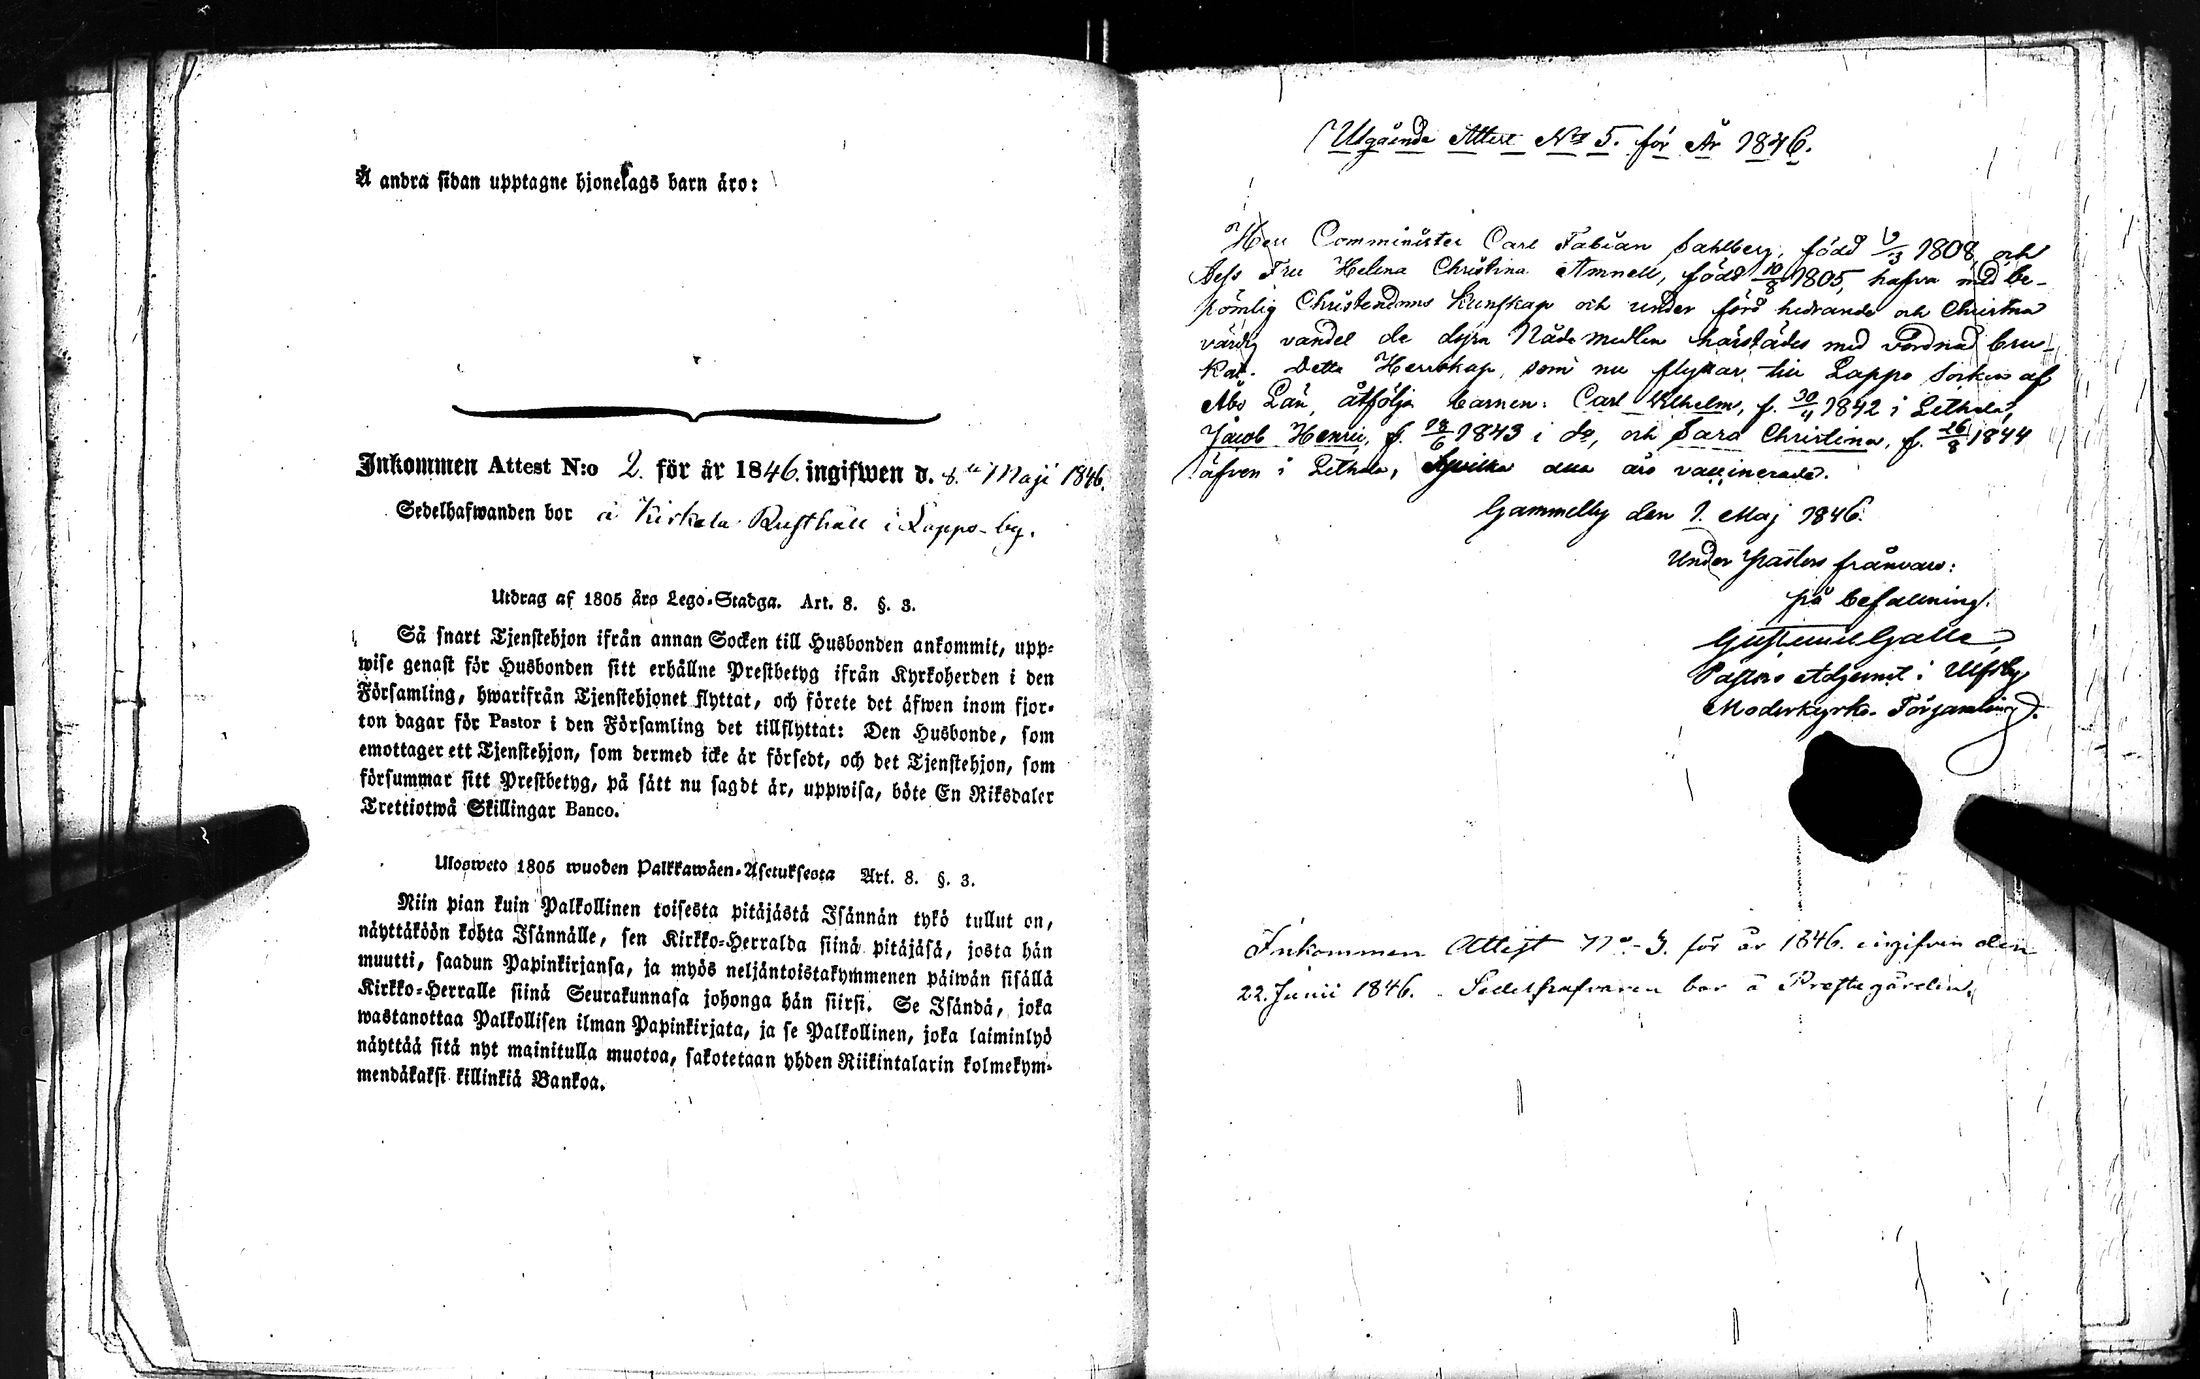 Å andra sidan upptagne hjonelags barn äro:
Inkommen Attest N:o 2. för år 1846. ingifwen d. 8.de Maji 1846.
Sedelhafwanden bor å Kirkala Rusthåll i Lappo-by.
Utdrag af 1805 års Lego-Stadga. Art. 8. §. 3.
Så snart Tjenstehjon ifrån annan Socken till Husbonden ankommit, upp-
wise genast för Husbonden sitt erhållne Prestbetyg ifrån Kyrkoherden i den
Församling, hwarifrån Tjenstehjonet flyttat, och förete det äfwen inom fjor-
ton dagar för Pastor i den Församling det tillflyttat: Den Husbonde, som
emottager ett Tjenstehjon, som dermed icke är försedt, och det Tjenstehjon, som
försummar sitt Prestbetyg, på sätt nu sagdt är, uppwisa, böte En Riksdaler
Trettiotwå Skillingar Banco.
Ulosweto 1805 wuoden Palkkawäen-Asetuksesta Art. 8. §. 3.
Niin pian kuin Palkollinen toisesta pitäjästä Isännän tykö tullut on,
näyttäköön kohta Isännälle, sen Kirkko-Herralda siinä pitäjäsä, josta hän
muutti, saadun Papinkirjansa, ja myös neljäntoistakymmenen päiwän sisällä
Kirkko-Herralle siinä Seurakunnasa johonga hän siirsi. Se Isändä, joka
wastanottaa Palkollisen ilman Papinkirjata, ja se Palkollinen, joka laiminlyö
näyttää sitä nyt mainitulla muotoa, sakotetaan yhden Riikintalarin kolmekym-
mendäkaksi killinkiä Bankoa.
Utgående Attest No 5. för År 1846.
Herr Comminister Carl Fabian Sahlberg, född /3 1808, och
dess Fru Helena Christina Amnell, född 10/8 1805, hafva med be-
römlig Christendoms Kunskap och under förd hedrande och Christna
värdig vandel de dyra Nådemedlen härstädes med vördnad bru-
kat. Detta Herrskap, som nu flyttar till Lappo Socken af
Åbo Län, åtfölja barnen: Carl Wilhelm, f. 30/11 1842 i Lethala,
Jacob Henric, f. 18/6 1843 i do, och Sara Christina, f. 26/8 1844
äfven i Lethala, hvilka alla äro vaccinerade.
Gammelby den 1. Maj 1846.
Under Pastors frånvaro:
på befallning.
Galle,
Pastors Adjunct i Ulfsby
Moderkyrko-Församling.
Inkommen Attest No 3. för år 1846. ingifven den
22. Junii 1846. Sedelhafvaren bor å Prestegården.